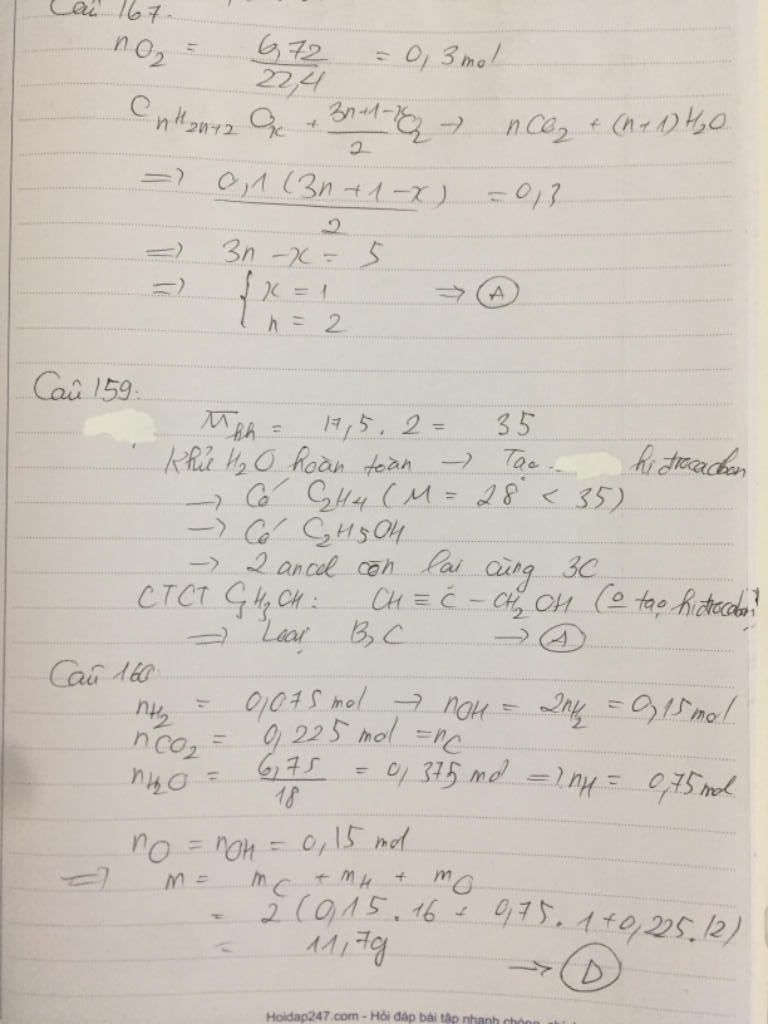 Câu 167.
nO2 = 6,72/22,4 = 0,3 mol
CnH2n+2Ox + (3n+1-x)/2 O2 → nCO2 + (n+1)H2O
=> 0,1(3n+1-x)/2 = 0,3
=> 3n - x = 5
=> { x = 1 => (A)
n = 2
Câu 159:
M̅hh = 17,5 . 2 = 35
Khử H2O hoàn toàn → Tạo hiđrocacbon
→ Có C2H4 (M = 28 < 35)
→ Có C2H5OH
→ 2 ancol còn lại cùng 3C
CTCT CH ≡ C - CH2OH (o tạo hiđrocacbon)
=> Loại B, C → (A)
Câu 160
nH2 = 0,075 mol → nOH = 2nH2 = 0,15 mol
nCO2 = 0,225 mol = nC
nH2O = 6,75/18 = 0,375 mol => nH = 0,75 mol
nO = nOH = 0,15 mol
=> m = mC + mH + mO
= 2(0,15.16 + 0,75.1 + 0,225.12)
= 11,7g
→ (D)
Hoidap247.com - Hỏi đáp bài tập nhanh chóng,